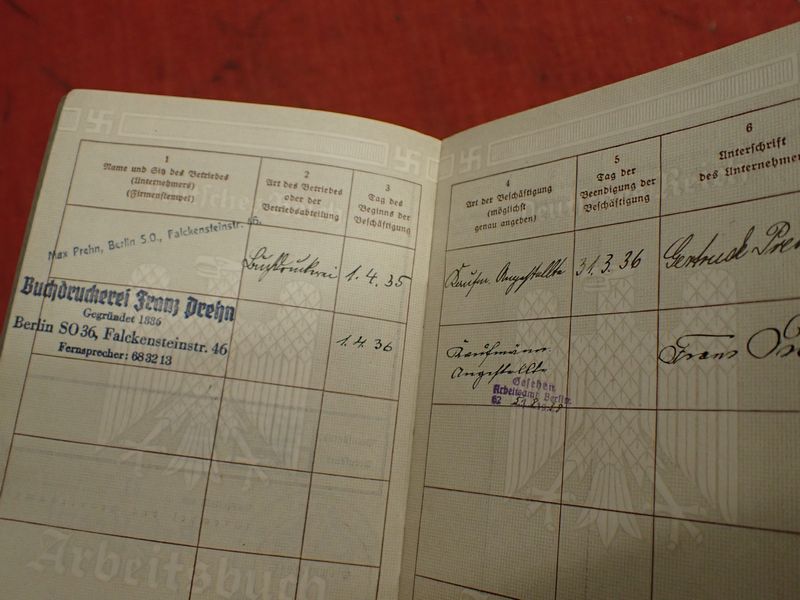 1
Name und Sitz des Betriebes
(Unternehmers)
(Firmenstempel)
2
Art des Betriebes
oder der
Betriebsabteilung
3
Tag des
Beginns der
Beschäftigung
Max Prehn, Berlin S.O., Falckensteinstr. 46.
Buchdruckerei
1.4.35
Buchdruckerei Franz Prehn
Gegründet 1886
Berlin SO 36, Falckensteinstr. 46
Fernsprecher: 68 32 13
1.4.36
Arbeitsbuch
4
Art der Beschäftigung
(möglichst
genau angeben)
5
Tag der
Beendigung der
Beschäftigung
6
Unterschrift
des Unternehmers
Kaufm. Angestellte
31.3.36
Gertrude Pre
Kaufmänn.
Angestellte
Franz
Gesehen
Arbeitsamt Berlin
62